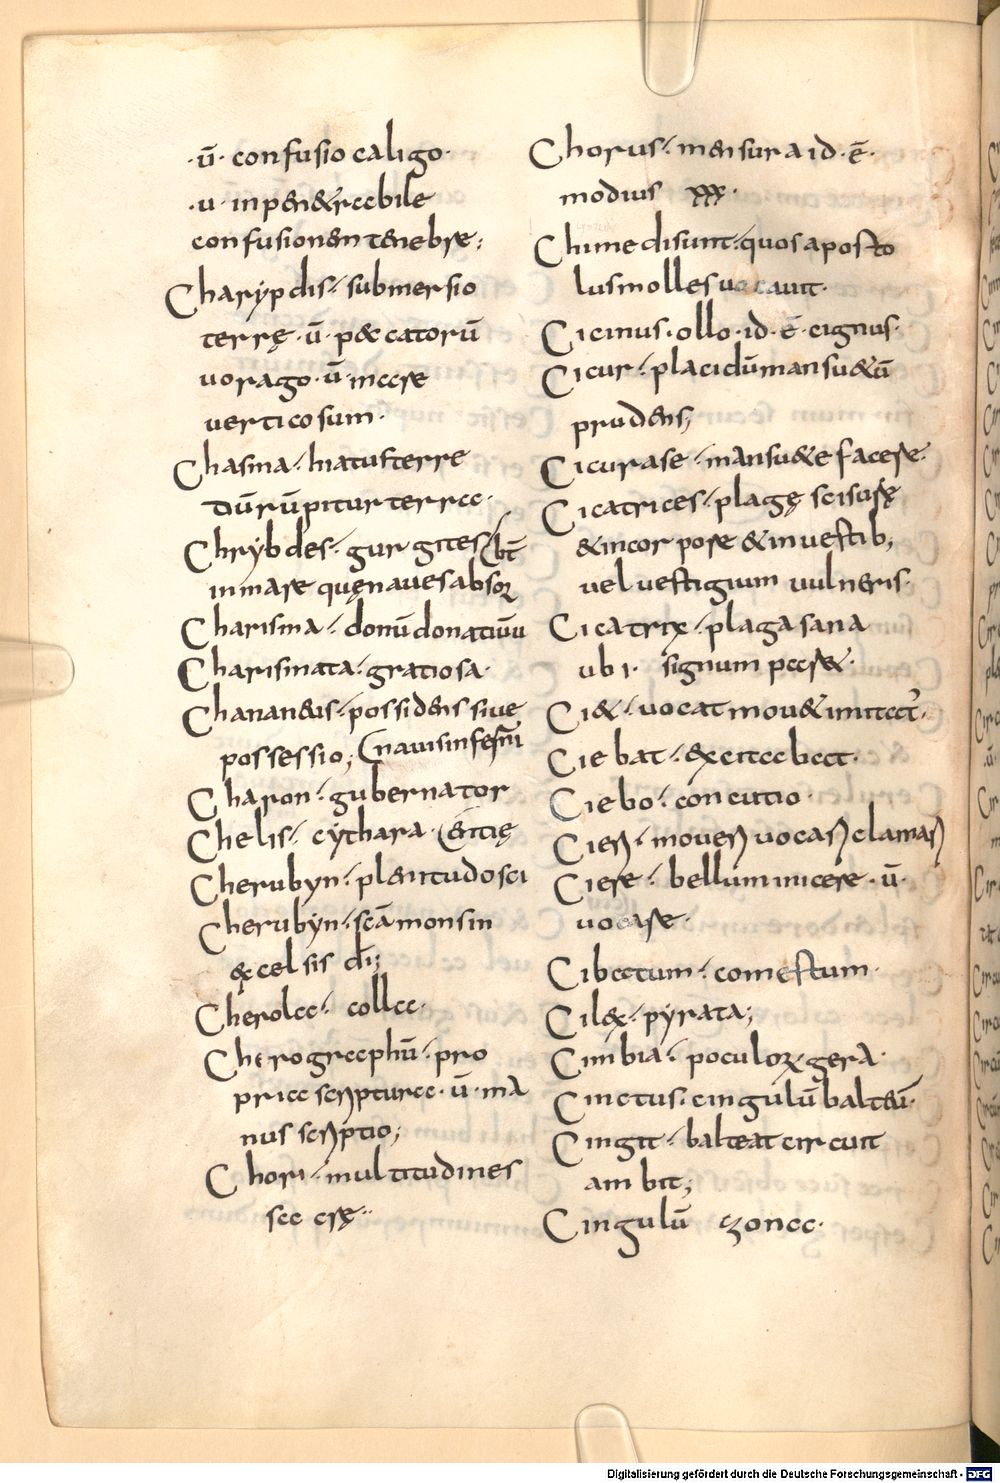 ·ū· confusio caligo·
·u· inpen&rabile
confusionem tenebre;
Charypdis· submersio
terrę· ū· p&catorū
uorago· ū· mare
uerticosum·
Chasma· hiatus terre
dū rūpitur terra·
Chrybdes· gurgites
bt̄
in mare quę naues absor
Charisma· donū donatiuū
Charismata· gratiosa·
Chananeus· possidens siue
possessio; (nauis infer̄ni
Charon· gubernator
Chelis· cythara· (entię
Cherubyn· plenitudo sci
Cherubyn· scā mons in
excelsis dī;
Cherolec· collec·
Cherographū· pro
pria scriptura· ū· ma
nus scriptio;
Chori· multitudines
sac erę··
Chorus· mensura id· ē·
modius xxx·
Chimedi sunt· quos aposto
lus molles uocauit·
Cicinus· ollo· id· ē· cignus·
Cicur· placidū mansu&ū
prudens;
Cicurare· mansu&e facere·
Cicatrices· plagę scisurę
& incorpore & in uestib;
uel uestigium uulneris·
Cicatrix· plaga sana
ubi· signum par&·
Ci&· uocat mou& imitat᷑·
Ciebat· excitabat·
Ciebo· concutio·
Cier̄· mouer̄ uocar̄ clamar̄
Ciere· bellum inicere· ū·
uocare·
Cibatum· comestum·
Cilex· pyrata;
Cimbia· poculoꝝ gera·
Cinctus· cingulū balteū·
Cingit· balteat circuit
ambit;
Cingulū zonae·
Digitalisierung gefördert durch die Deutsche Forschungsgemeinschaft - DFG